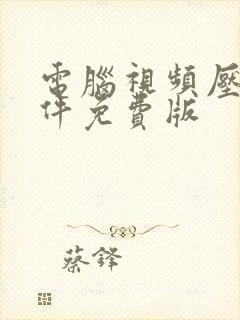 電腦視頻壓
件免費版
蔡鋒